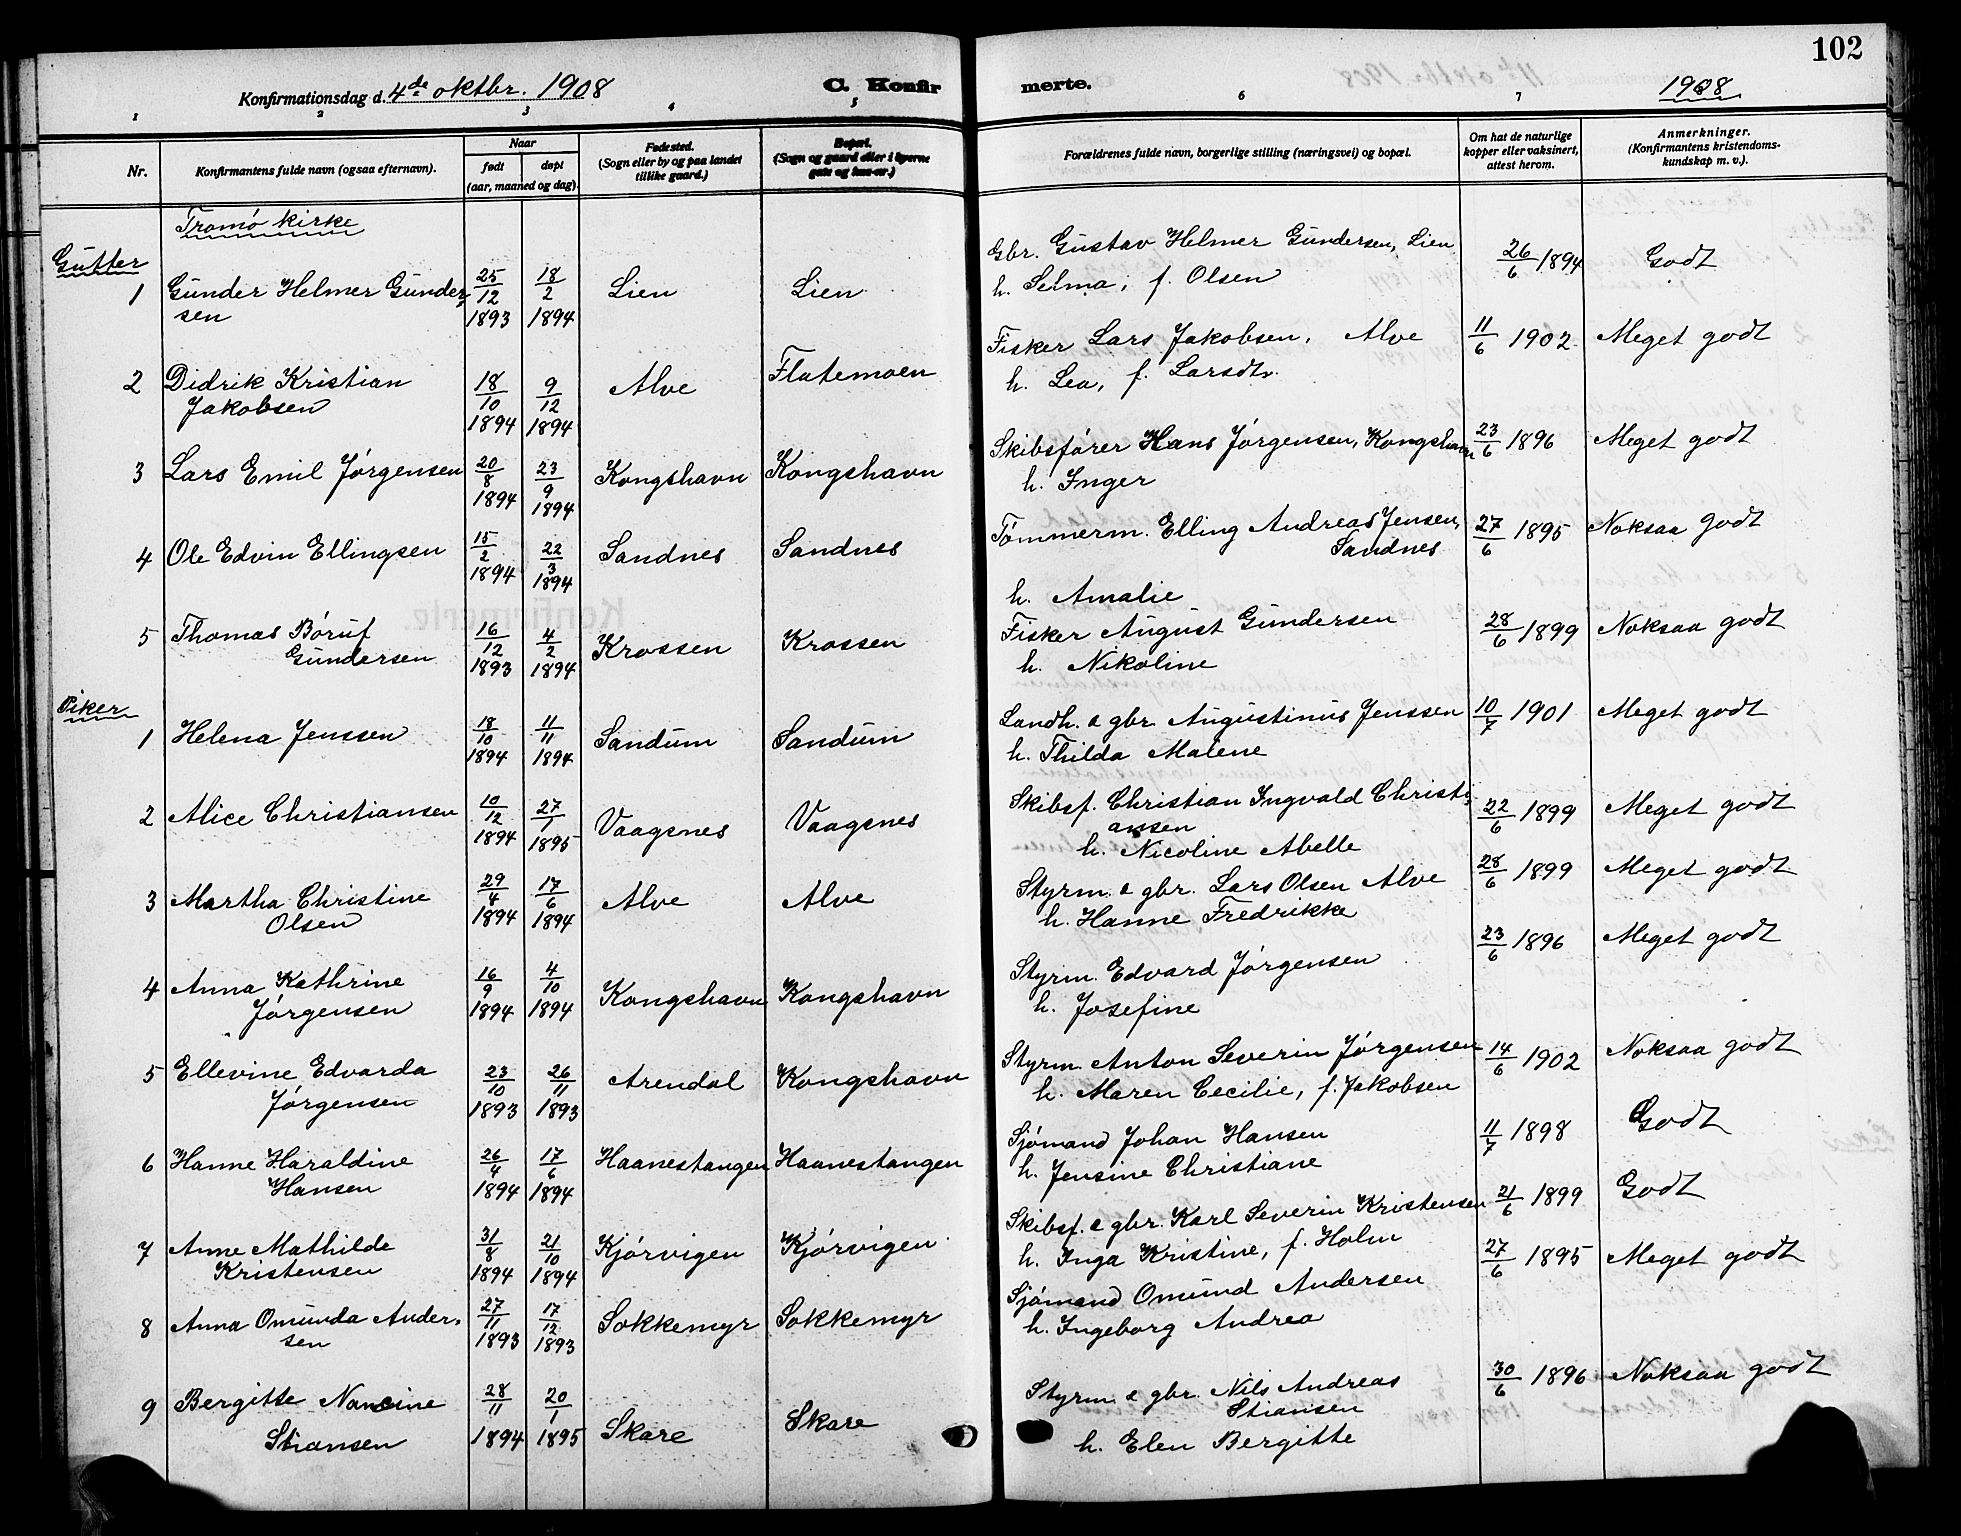 102
Konfirmationsdag d. 4de oktbr. 1908
C. Konfirmerte.
1908
1 2 3 4 5 6 7
Nr.
Konfirmantens fulde navn (ogsaa efternavn).
Naar
født
døpt
(aar, maaned og dag)
Fødested.
(Sogn eller by og paa landet
tillike gaard.)
Bopæl.
(Sogn og gaard eller i byerne
gate og hus-nr.)
Forældrenes fulde navn, borgerlige stilling (næringsvei) og bopæl.
Om hat de naturlige
kopper eller vaksinert,
attest herom.
Anmerkninger.
(Konfirmantens kristendoms-
kundskap m. v.).
Tromø kirke
Gutter
1 Gunder Helmer Gunder- 25/12 18/2 Lien Lien Gbr. Gustav Helmer Gundersen, Lien 26/6 1894 Godt
sen 1893 1894 h. Selma, f. Olsen
2 Didrik Kristian 18/10 9/12 Alve Flatemoen Fisker Lars Jakobsen, Alve 11/6 1902 Meget godt
Jakobsen 1894 1894 h. Lea, f. Larsdtr.
3 Lars Emil Jørgensen 20/8 1894 23/9 1894 Kongshavn Kongshavn Skibsfører Hans Jørgensen, Kongshavn 23/6 1896 Meget godt
h. Inger
4 Ole Edvin Ellingsen 15/2 1894 22/3 1894 Sandnes Sandnes Tømmerm. Elling Andreas Jensen, 27/6 1895 Noksaa Godt
Sandnes
h. Amalie
5 Thomas Børuf 16/12 4/2 Krossen Krossen Fisker August Gundersen 28/6 1899 Noksaa godt
Gundersen 1893 1894 h. Nikoline
Piker
1 Helena Jenssen 18/10 1894 11/11 1894 Sandum Sandum Landh. & gbr. Augustinus Jenssen 10/7 1901 Meget godt
h. Thilda Malene
2 Alice Christiansen 10/12 1894 27/1 1895 Vaagsnes Vaagsnes Skibsf. Christian Ingvald Christi- 22/6 1899 Meget godt
ansen
h. Nicoline Abelle
3 Martha Christine 29/4 17/6 Alve Alve Styrm. & gbr. Lars Olsen Alve 28/6 1899 Meget godt
Olsen 1894 1894 h. Hanne Fredrikke
4 Anna Kathrine 16/9 4/10 Kongshavn Kongshavn Styrm. Edvard Jørgensen 23/6 1896 Meget godt
Jørgensen 1894 1894 h. Josefine
5 Ellevine Edvarda 23/10 26/11 Arendal Kongshavn Styrm. Anton Severin Jørgensen 14/6 1902 Noksaa godt
Jørgensen 1893 1893 h. Maren Cecilie, f. Jakobsen
6 Hanne Haraldine 26/4 17/6 Haanestangen Haanestangen Sjømand Johan Hansen 11/7 1898 Godt
Hansen 1894 1894 h. Jensine Christiane
7 Anne Mathilde 31/8 21/10 Kjørvigen Kjørvigen Skibsf. & gbr. Karl Severin Kristensen 21/6 1899 Godt
Kristensen 1894 1894 h. Inga Kristine, f. Holm
8 Anna Omunda Ander- 27/11 17/12 Sokkemyr Sokkemyr Sjømand Omund Andersen 27/6 1895 Meget godt
sen 1893 1893 h. Ingeborg Andrea
9 Bergitte Nancine 28/11 20/1 Skare Skare Styrm. & gbr. Nils Andreas 30/6 1896 Noksaa godt
Stiansen 1894 1895 Stiansen
h. Elen Bergitte